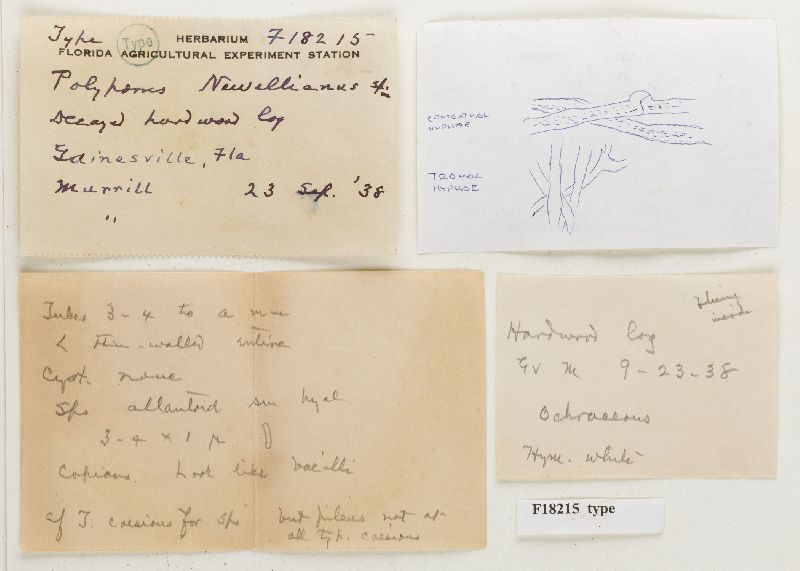 Type Type HERBARIUM F18215
FLORIDA AGRICULTURAL EXPERIMENT STATION
Polyporus Newellianus sp.
Decayed hardwood log
Gainesville, Fla
Murrill 23 Sep. '38
"
CONTEXTUAL
HYPHAE
TRAMAL
HYPHAE
Tubes 3-4 to a mm
L thin-walled entire
Cyst. none
Sps allantoid sm hyal
3-4 x 1 µ
Copious. Look like bacilli
cf T. caesious for sps but pileus not at
all typ. caesious
inside
Hardwood log
Gv M 9-23-38
Ochraceous
Hym. white
F18215 type